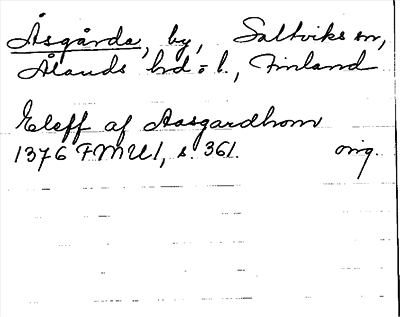 Åsgårda, by, Saltviks sn,
Ålands hd o l., Finland
Eleff af Aasgardhom
1376 FMU1, s. 361. orig.